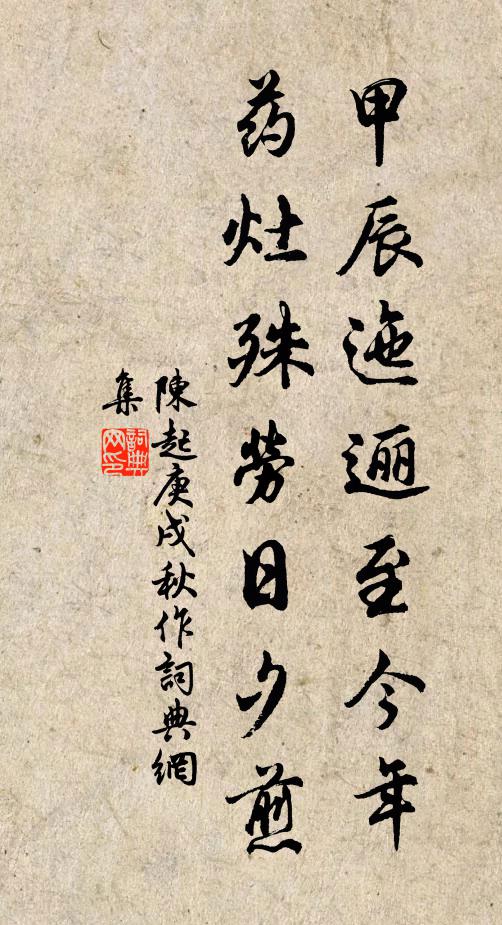 甲辰迤逦至今年
药灶殊劳日夕煎
陳起庚戌秋作詞典網
集
詞典网印